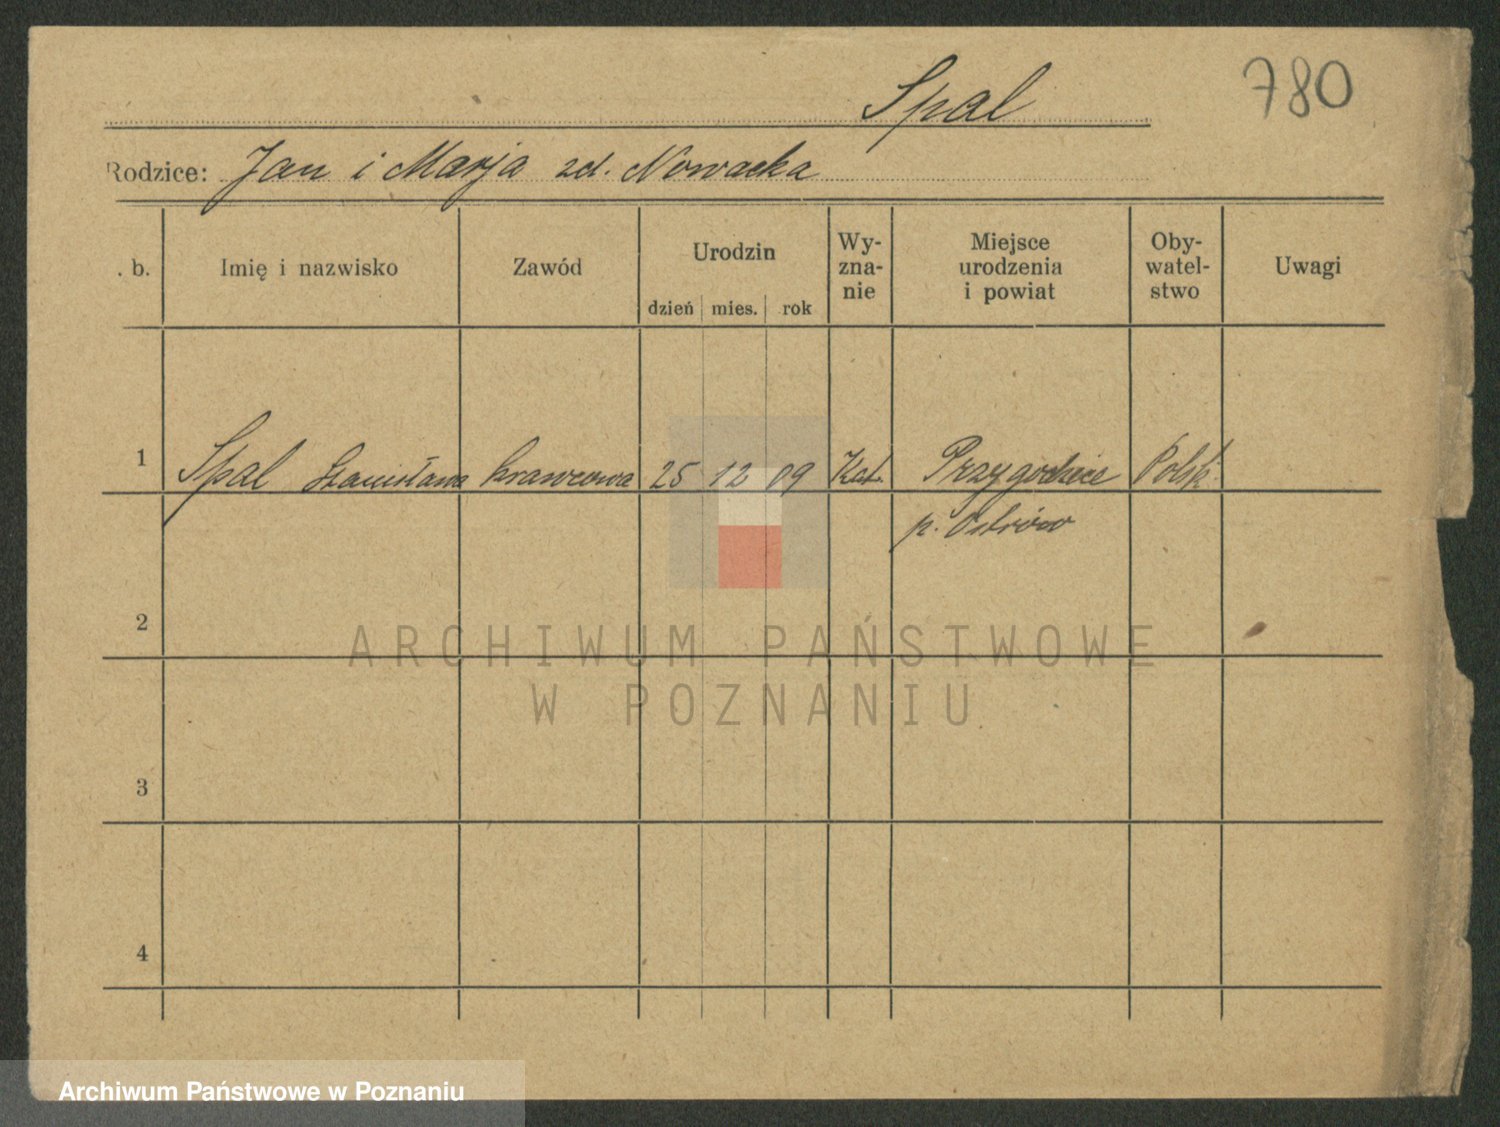 Spal
780
Rodzice: Jan i Marja zd. Nowacka
. b. Imię i nazwisko Zawód Urodzin dzień mies. rok Wy- zna- nie Miejsce urodzenia i powiat Oby- watel- stwo Uwagi
1 Spal Stanisława krawcowa 25 12 09 Kat. Przygodzice Polsk.
p. Ostrów
2
ARCHIWUM PAŃSTWOWE
W POZNANIU
3
4
Archiwum Państwowe w Poznaniu